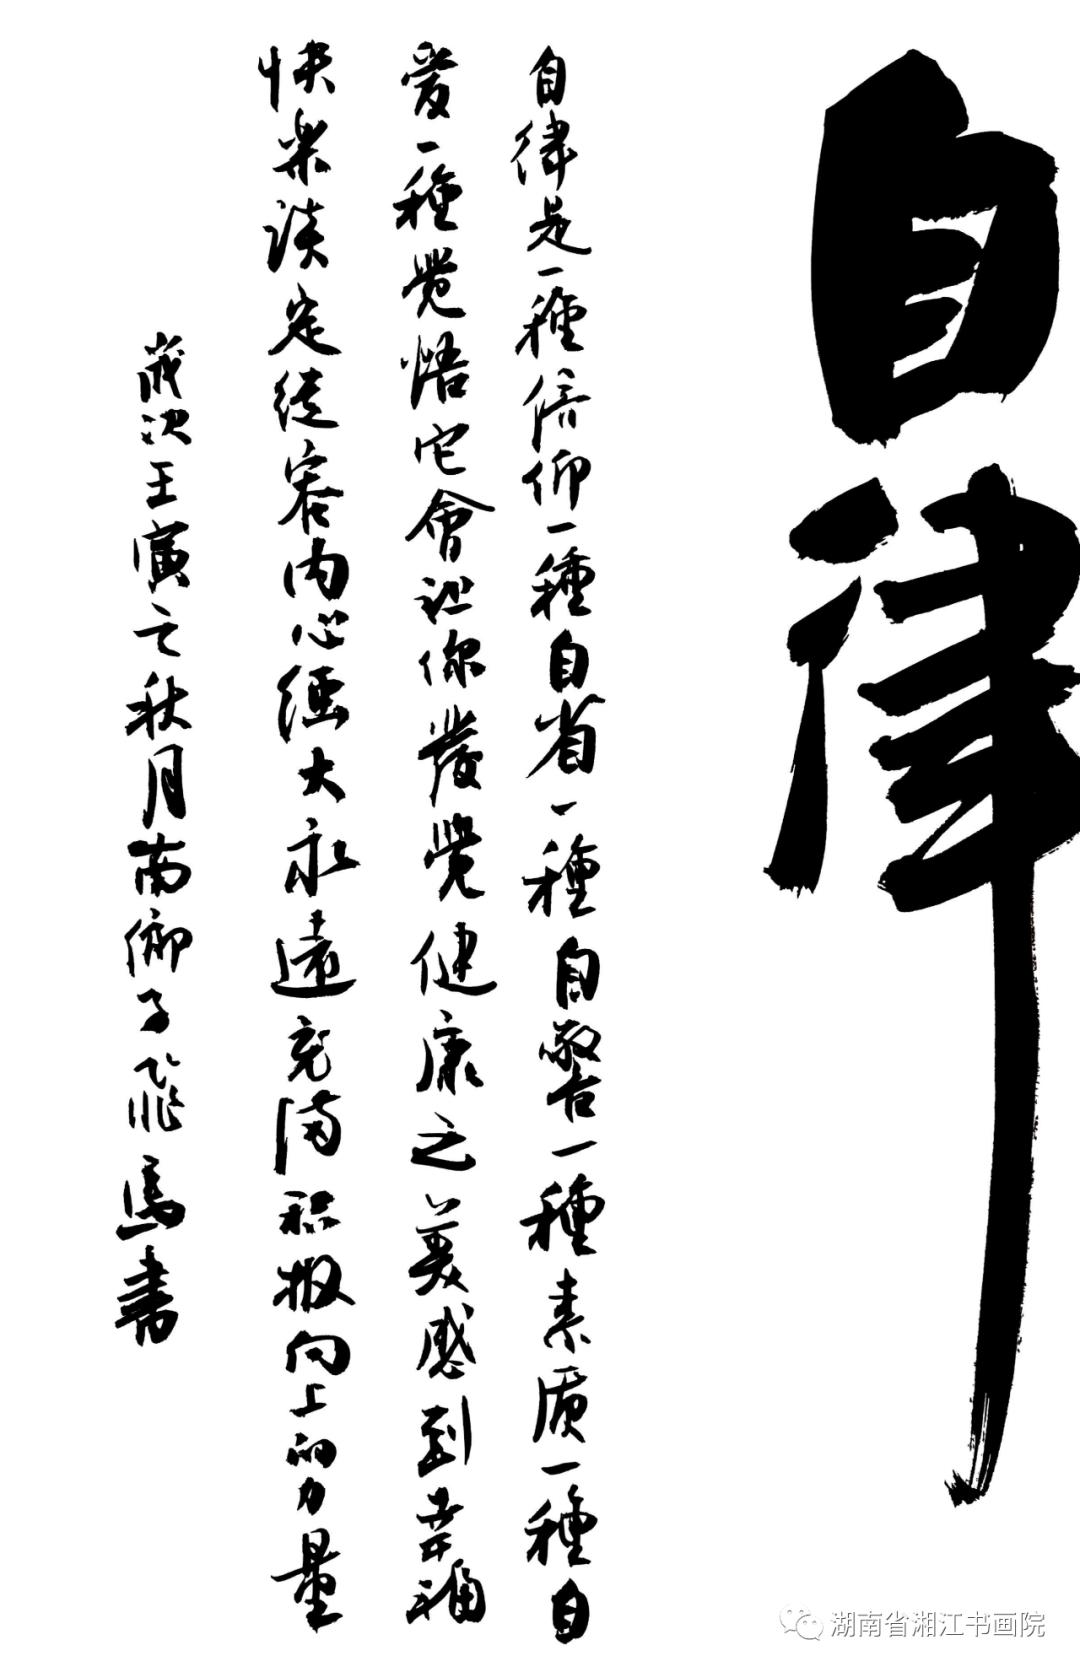 自律
自律是一種信仰一種自省一種自警一種素質一種自
愛一種覺悟它會让你發覺健康之美感到幸福
快樂谈定從容内心强大永遠充满积极向上的力量
歲次壬寅之秋月南鄉子飛馬書
湖南省湘江书画院